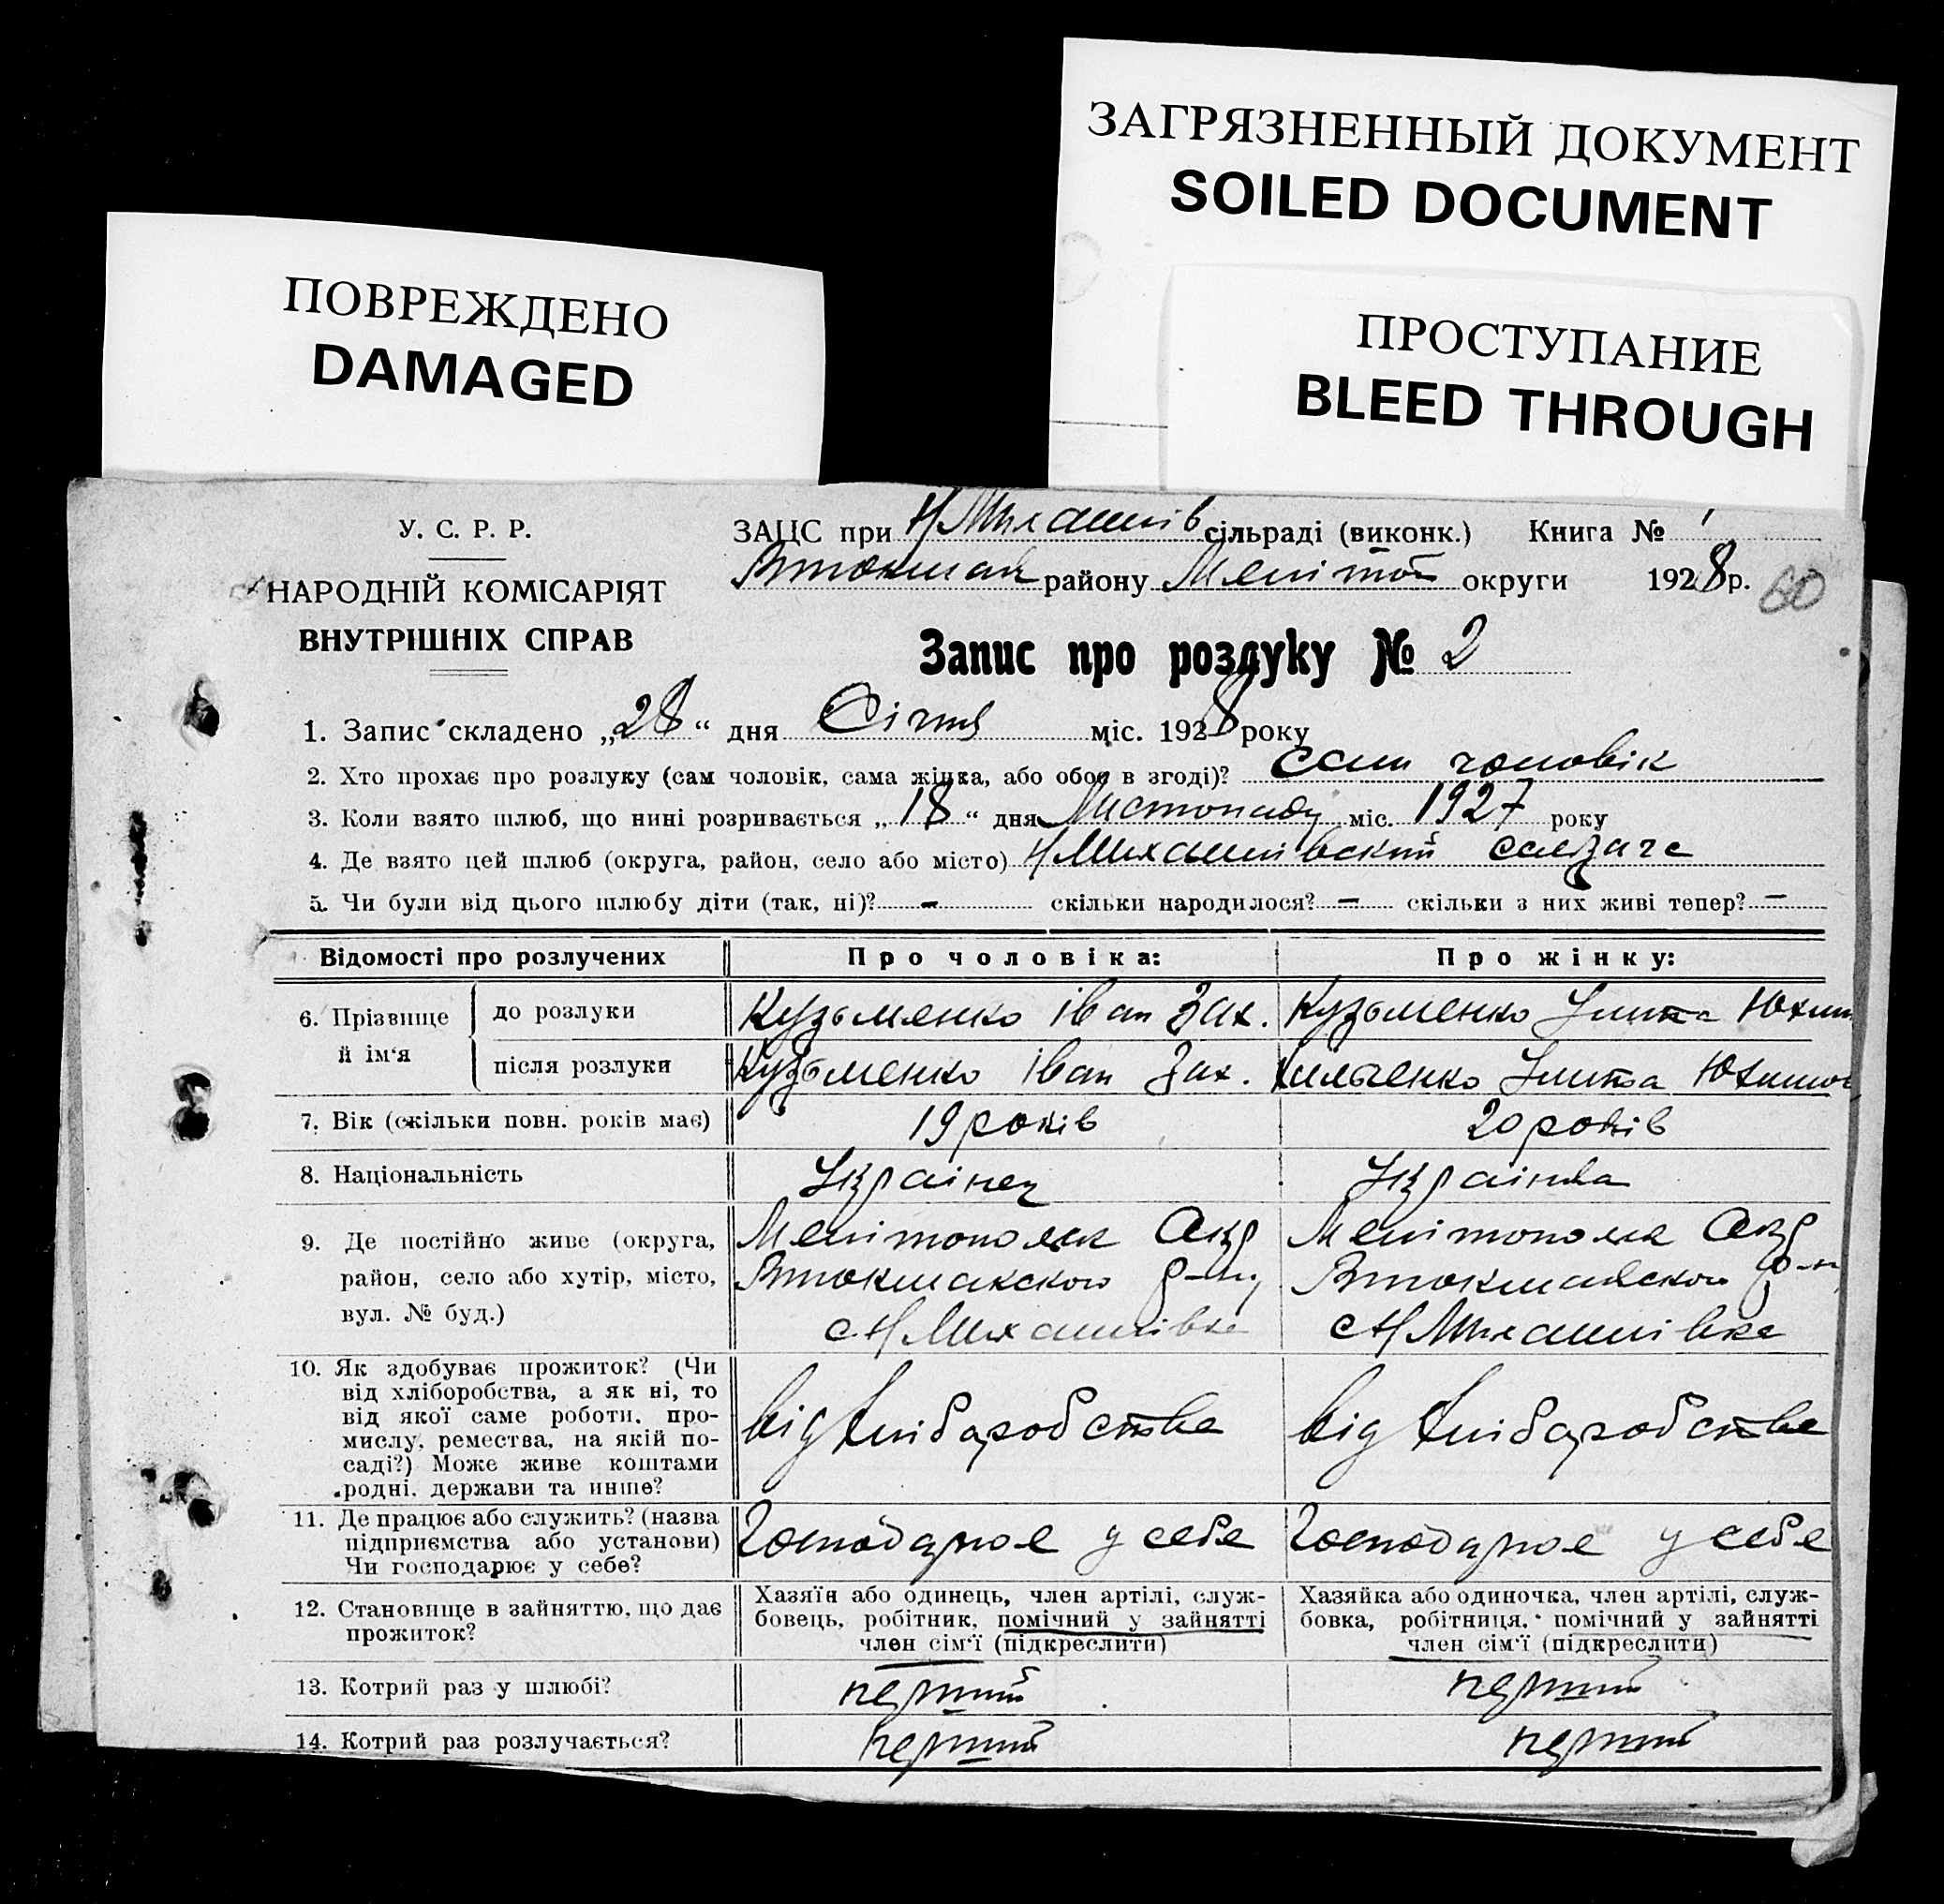 ЗАГРЯЗНЕННЫЙ ДОКУМЕНТ
SOILED DOCUMENT
ПОВРЕЖДЕНО
DAMAGED
ПРОСТУПАНИЕ
BLEED THROUGH
У. С. Р. Р.
НАРОДНІЙ КОМІСАРІЯТ
ВНУТРІШНІХ СПРАВ
ЗАЦС при сільраді (виконк.) Книга № 1
району округи 1928 р. 60
Запис про розлуку № 2
1. Запис складено „28“ дня Січня міс. 1928 року
2. Хто прохає про розлуку (сам чоловік, сама жінка, або обоє в згоді)? сам чоловік
3. Коли взято шлюб, що нині розривається „18“ дня Листопаду міс. 1927 року
4. Де взято цей шлюб (округа, район, село або місто)
5. Чи були від цього шлюбу діти (так, ні)? – скільки народилося? – скільки з них живі тепер? –
Відомості про розлучених Про чоловіка: Про жінку:
6. Прізвище й ім'я
до розлуки Кузьменко Іван Зах. Кузьменко
після розлуки Кузьменко Іван Зах.
7. Вік (скільки повн. років має) 19 років 20 років
8. Національність Українец Українка
9. Де постійно живе (округа,
район, село або хутір, місто,
вул. № буд.)
Мелітополск Окр Мелітополск Окр
Втокмакского р-ну Втокмакского р-н
с Н Михайлівка с Н Михайлівка
10. Як здобуває прожиток? (Чи
від хліборобства, а як ні, то
від якої саме роботи, про-
мислу, ремества, на якій по-
саді?) Може живе коштами
родні, держави та инше?
від хліборобства від хліборобства
11. Де працює або служить? (назва
підприємства або установи)
Чи господарює у себе?
Господарює у себе Господарює у себе
12. Становище в зайняттю, що дає
прожиток?
Хазяїн або одинець, член артілі, служ-
бовець, робітник, помічний у зайнятті
член сім'ї (підкреслити)
Хазяйка або одиночка, член артілі, служ-
бовка, робітниця, помічний у зайнятті
член сім'ї (підкреслити)
13. Котрий раз у шлюбі? перший перший
14. Котрий раз розлучається? перший перший